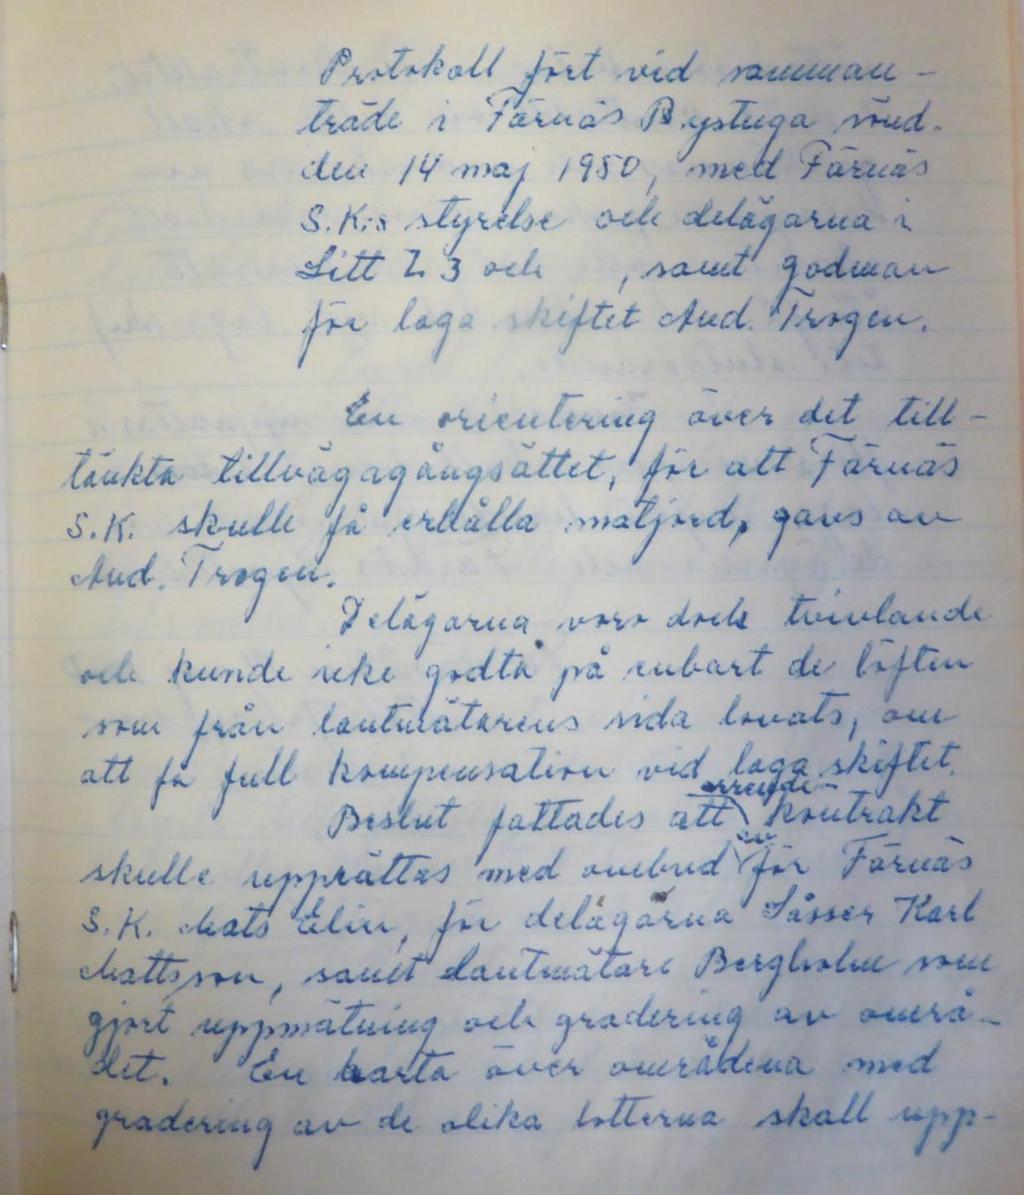 Protokoll fört vid samman-
träde i Färnäs Bystuga sönd.
den 14 maj 1950, med Färnäs
S.K:s styrelse och delägarna i
Litt Z 3 och    , samt godman
för laga skiftet And. Trogen.
En orientering över det till-
tänkta tillvägagångsättet, för att Färnäs
S.K. skulle få erhålla matjord, gavs av
And. Trogen.
Delägarna voro dock tvivlande
och kunde icke godta på enbart de löften
som från lantmätarens sida lovats, om
att få full kompensation vid laga skiftet.
Beslut fattades att arrende kontrakt
skulle upprättas med ombud för Färnäs
S.K. Mats Elin, för delägarna Såsser Karl
Mattsson, samt Lantmätare Bergholm som
gjort uppmätning och gradering av områ-
det. En karta över områdena med
gradering av de olika lotterna skall upp-